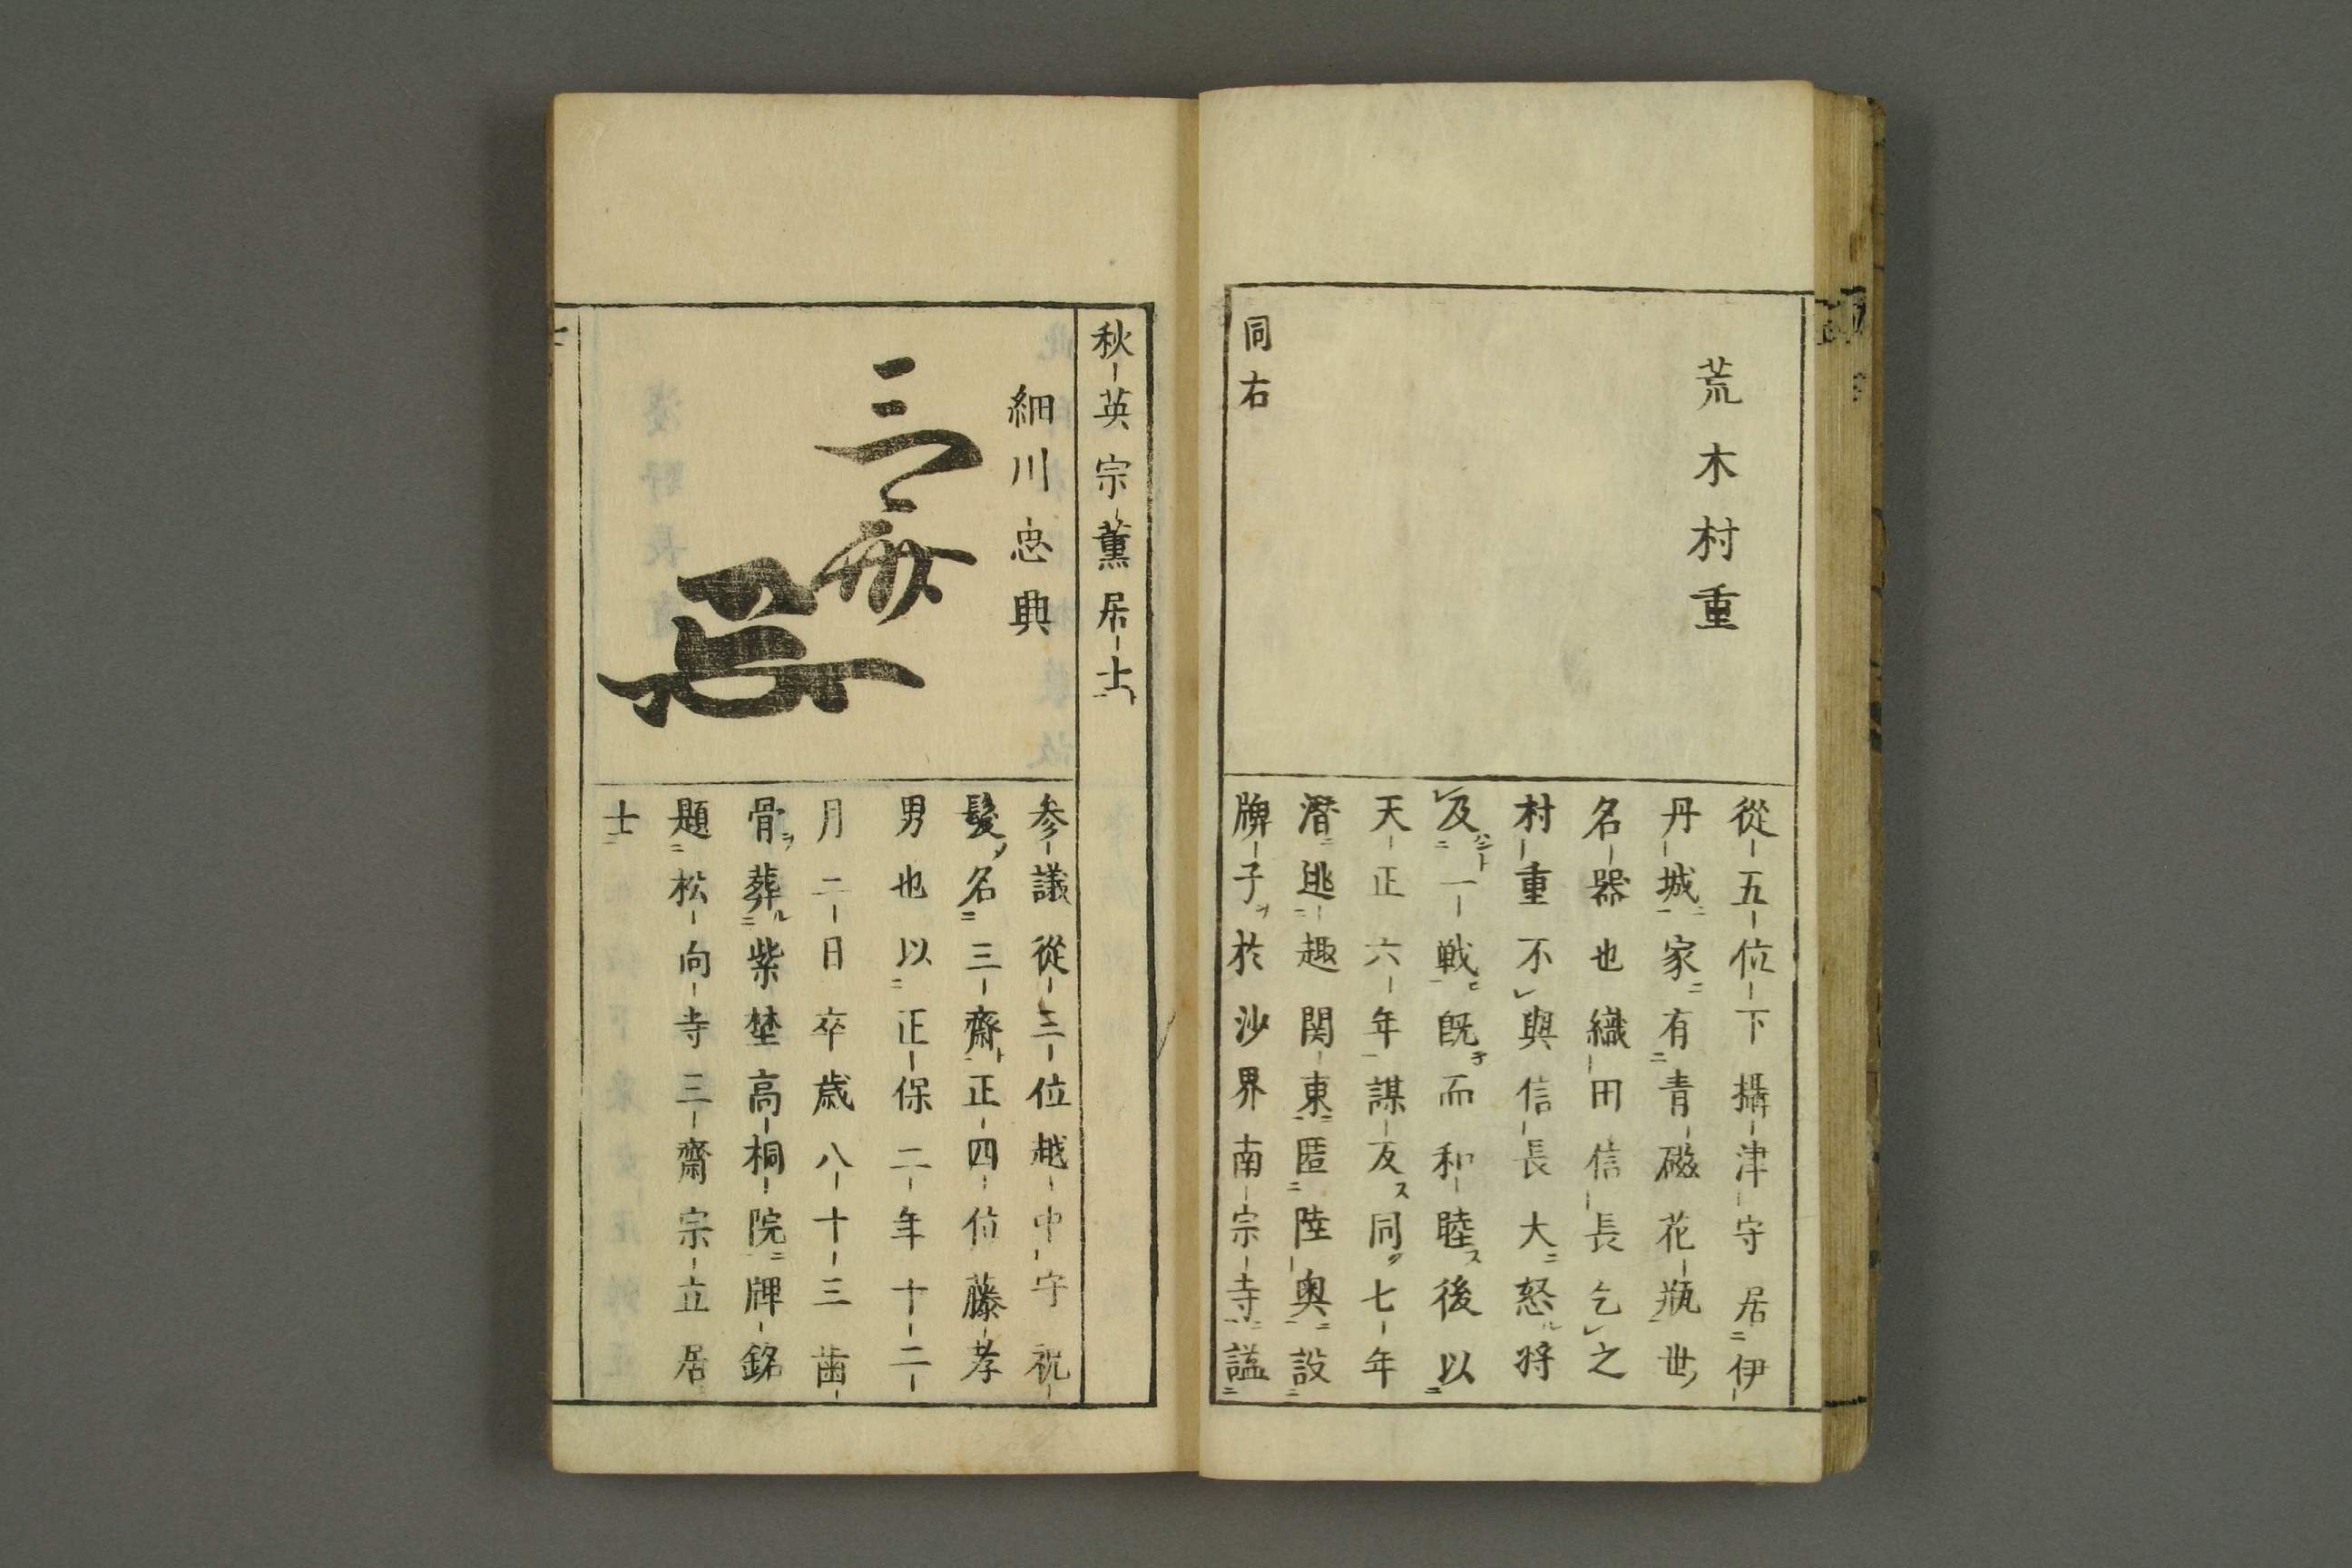 荒木村重
從五位下攝津守居伊
丹城家有青磁花瓶世
名器也織田信長乞之
村重不與信長大怒将
及一戦既而和睦後以
天正六年謀反同七年
潛逃趣関東匿陸奥設
牌子於沙界南宗寺謚
同右
秋英宗薫居士
細川忠興
三齋
参議從三位越中守祝
髪名三齋正四位藤孝
男也以正保二年十二
月二日卒歳八十三歯
骨葬紫埜高桐院牌銘
題松向寺三齋宗立居
士